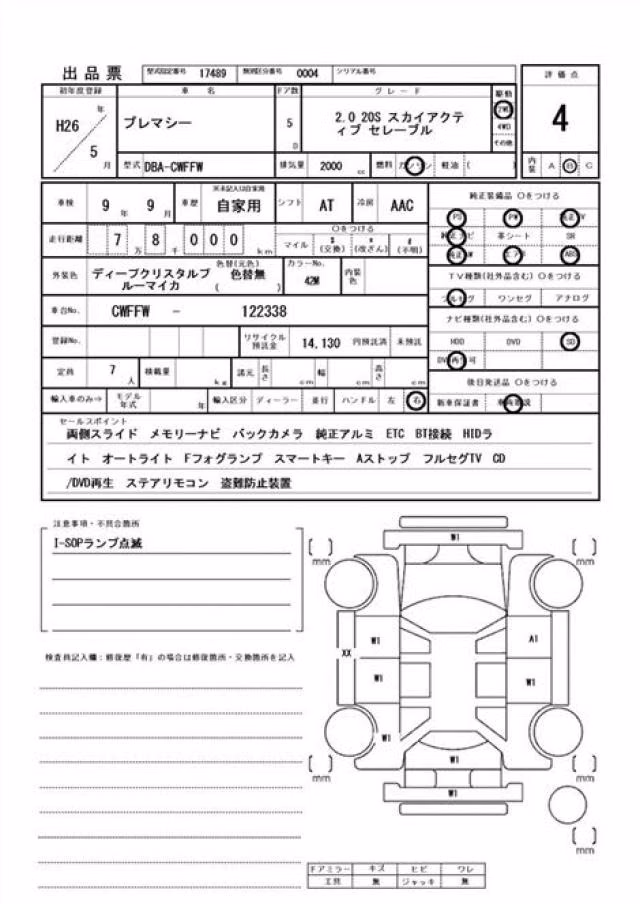 出品票 型式指定番号 17489 類別区分番号 0004 シリアル番号
評価点
4
内装 A B C
初年度登録 車名 ドア数 グレード 駆動
H26 年 5 月
ブレマシー
5 D
2.0 20S スカイアクテ
ィブ セレーブル
2WD
4WD
その他
型式 DBA-CWFFW 排気量 2000 cc 燃料 ガソリン 軽油 ( )
車検 9 年 9 月 車歴 自家用 シフト AT 冷房 AAC
※未記入は自家用
走行距離 7 万 8 千 0 0 0 km
○をつける
マイル $(交換) *(改ざん) #(不明)
外装色 ディープクリスタルブ
ルーマイカ
色替(元色)
色替無
( )
カラーNo. 42M 内装色
車台No. CWFFW - 122338
登録No. リサイクル預託金 14,130 円預託済 未預託
定員 7 人 積載量 kg 諸元 長さ cm 幅 cm 高さ cm
輸入車のみ⇒ モデル年式 年 輸入区分 ディーラー 並行 ハンドル 左 右
純正装備品 ○をつける
PS PW 純正TV
純正ナビ 革シート SR
純正AW エアB ABS
TV種類(社外品含む) ○をつける
フルセグ ワンセグ アナログ
ナビ種類(社外品含む) ○をつける
HDD DVD SD
DVD再生可
後日発送品 ○をつける
新車保証書
セールスポイント
両側スライド メモリーナビ バックカメラ 純正アルミ ETC BT接続 HIDラ
イト オートライト Fフォグランプ スマートキー Aストップ フルセグTV CD
/DVD再生 ステアリモコン 盗難防止装置
注意事項・不具合箇所
I-SOPランプ点滅
検査員記入欄:修復歴「有」の場合は修復箇所・交換箇所を記入
W1
[ ] mm
[ ] mm
W1
A1
XX
W1
W1
W1
W1
[ ] mm
[ ] mm
W1
[ ] mm
ドアミラー キズ ヒビ ワレ
工具 無 ジャッキ 無